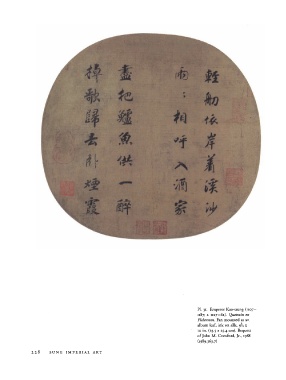 輕舠依岸著溪沙
兩〻相呼入酒家
盡把鱸魚供一醉
棹歌歸去卧煙霞
Emperor Kao-tsung (1107–
1187; r. 1127–62). Quatrain on
Fishermen. Fan mounted as an
album leaf, ink on silk,
10 in. Bequest
of John M. Crawford, Jr., 1988
228 SUNG IMPERIAL ART